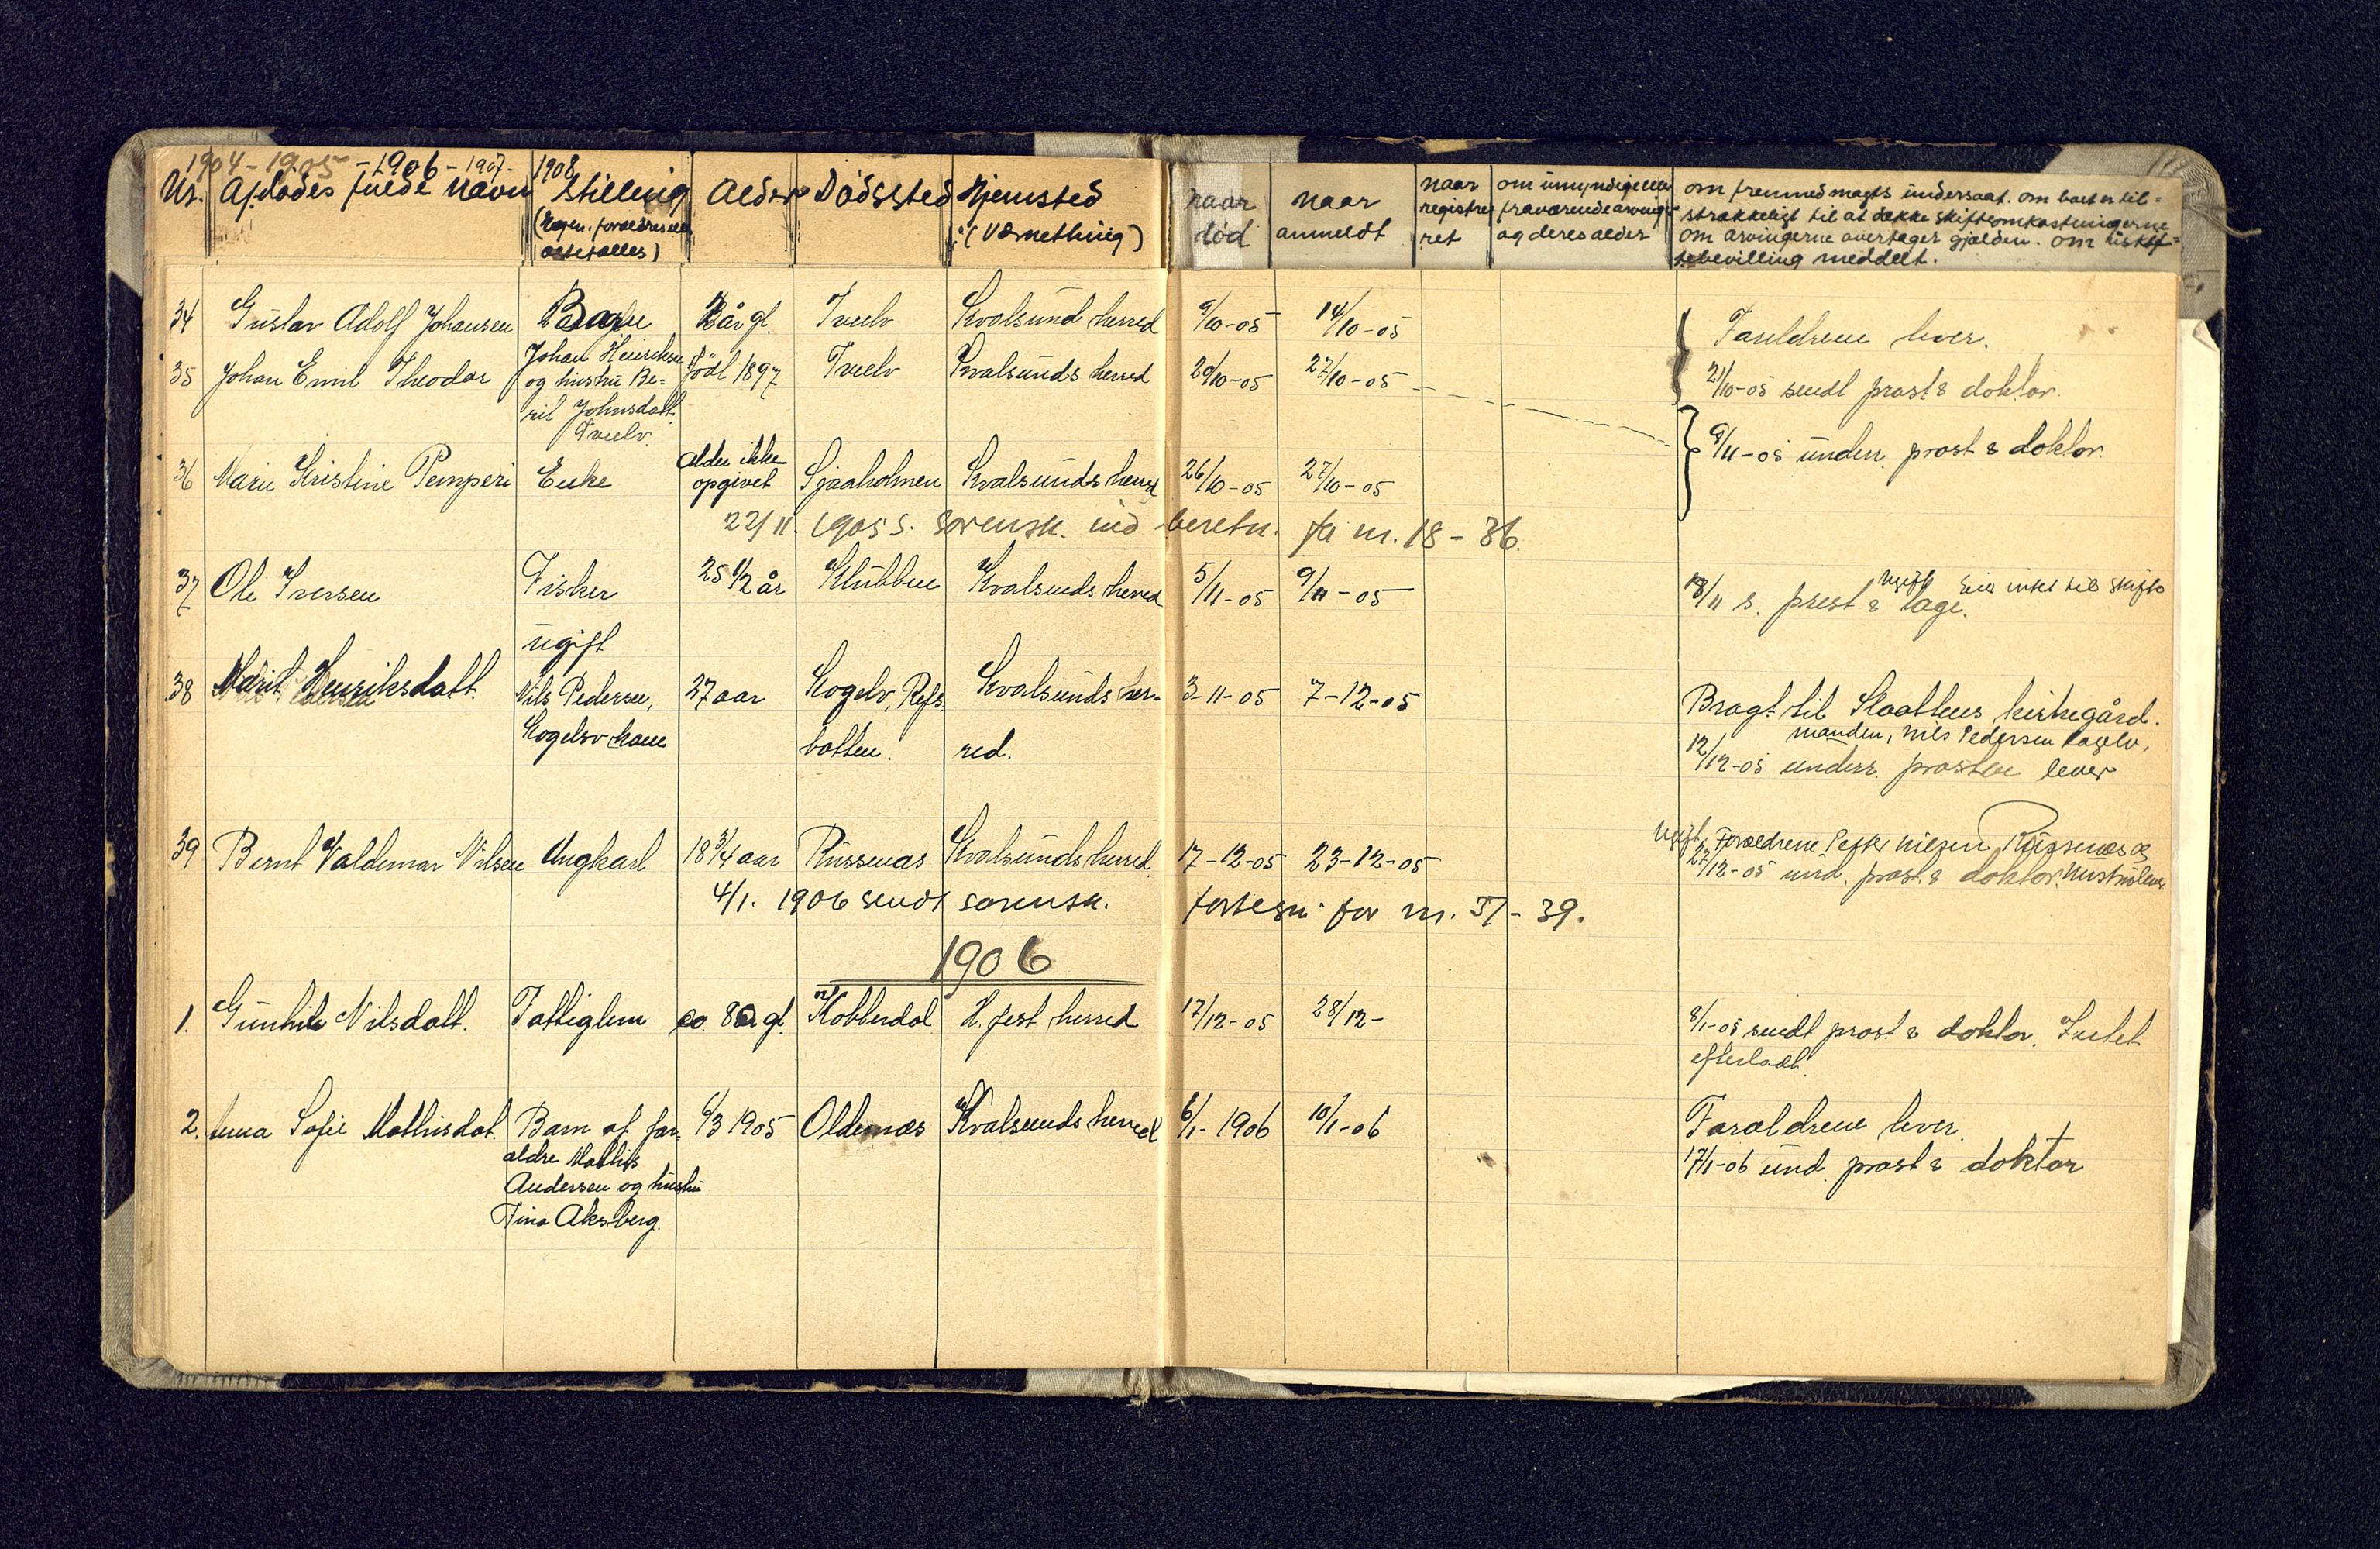 1904-1905 - 1906 - 1907 - 1908
Nr. Afdødes fulde Navn Stilling Alder Dødssted Hjemsted naar naar naar om umyndige eller om fremmed magts undersaat. om boet er til=
(Egen. forældres eller (Værnething) død anmeldt registre fraværende arvinger strækkeligt til at dække skifteomkostningerne
ægtefælles) ret og deres alder om arvingerne overtager gjælden. om uskif=
tebevilling meddelt.
34 Gustav Adolf Johansen år gl. Kvalsund herred 9/10-05 14/10-05 Forældrene lever.
35 Johan Emil Theodor Johan Henriksen Født 1897 Kvalsunds herred 20/10-05 27/10-05 21/10-05 sendt prost & doktor.
og hustru Be=
rit Johnsdatt.
36 Marie Kristine Pemperi Enke Alder ikke Kvalsunds herred 26/10-05 27/10-05 9/11-05 underr. prost & doktor.
opgivet
22/11 1905 s. sorensk. ind beretn. fa nr. 18 - 36.
37 Ole Iversen Fisker 25 1/2 år Klubben Kvalsunds herred 5/11-05 9/11-05 13/11 s. prest & læge. ugift Eier intet til skifte
ugift
38 Marit Henriksdatt. Nils Pedersen, 27 aar Kogelv, Refs- Kvalsunds her- 3-11-05 7-12-05 Bragt til kirkegård.
Kogelv kone botten. red. manden, Nils Pedersen Kogelv,
12/12-05 underr. prosten lever
39 Bernt Valdemar Nilsen Ungkarl 18 3/4 aar Russenæs Kvalsunds herred. 17-12-05 23-12-05 ugift. Forældrene Peder Nilsen Russenæs og
27/12-05 und. prost & doktor. hustru lever
4/1. 1906 sendt sorensk. fortegn. for nr. 37 - 39.
1906
1. Gunhild Nilsdatt. Fattiglem ca. 80 gl. Kobberdal H.fest herred 17/12-05 28/12- 8/1-05 sendt prost & doktor. Intet
efterladt.
2. Anna Sofie Mathisdat. Barn af for- 6/3 1905 Oldernæs Kvalsunds herred 6/1-1906 10/1-06 Forældrene lever.
ældre Mathis 17/1-06 und. prost & doktor
Andersen og hustru
Tina Aksberg.